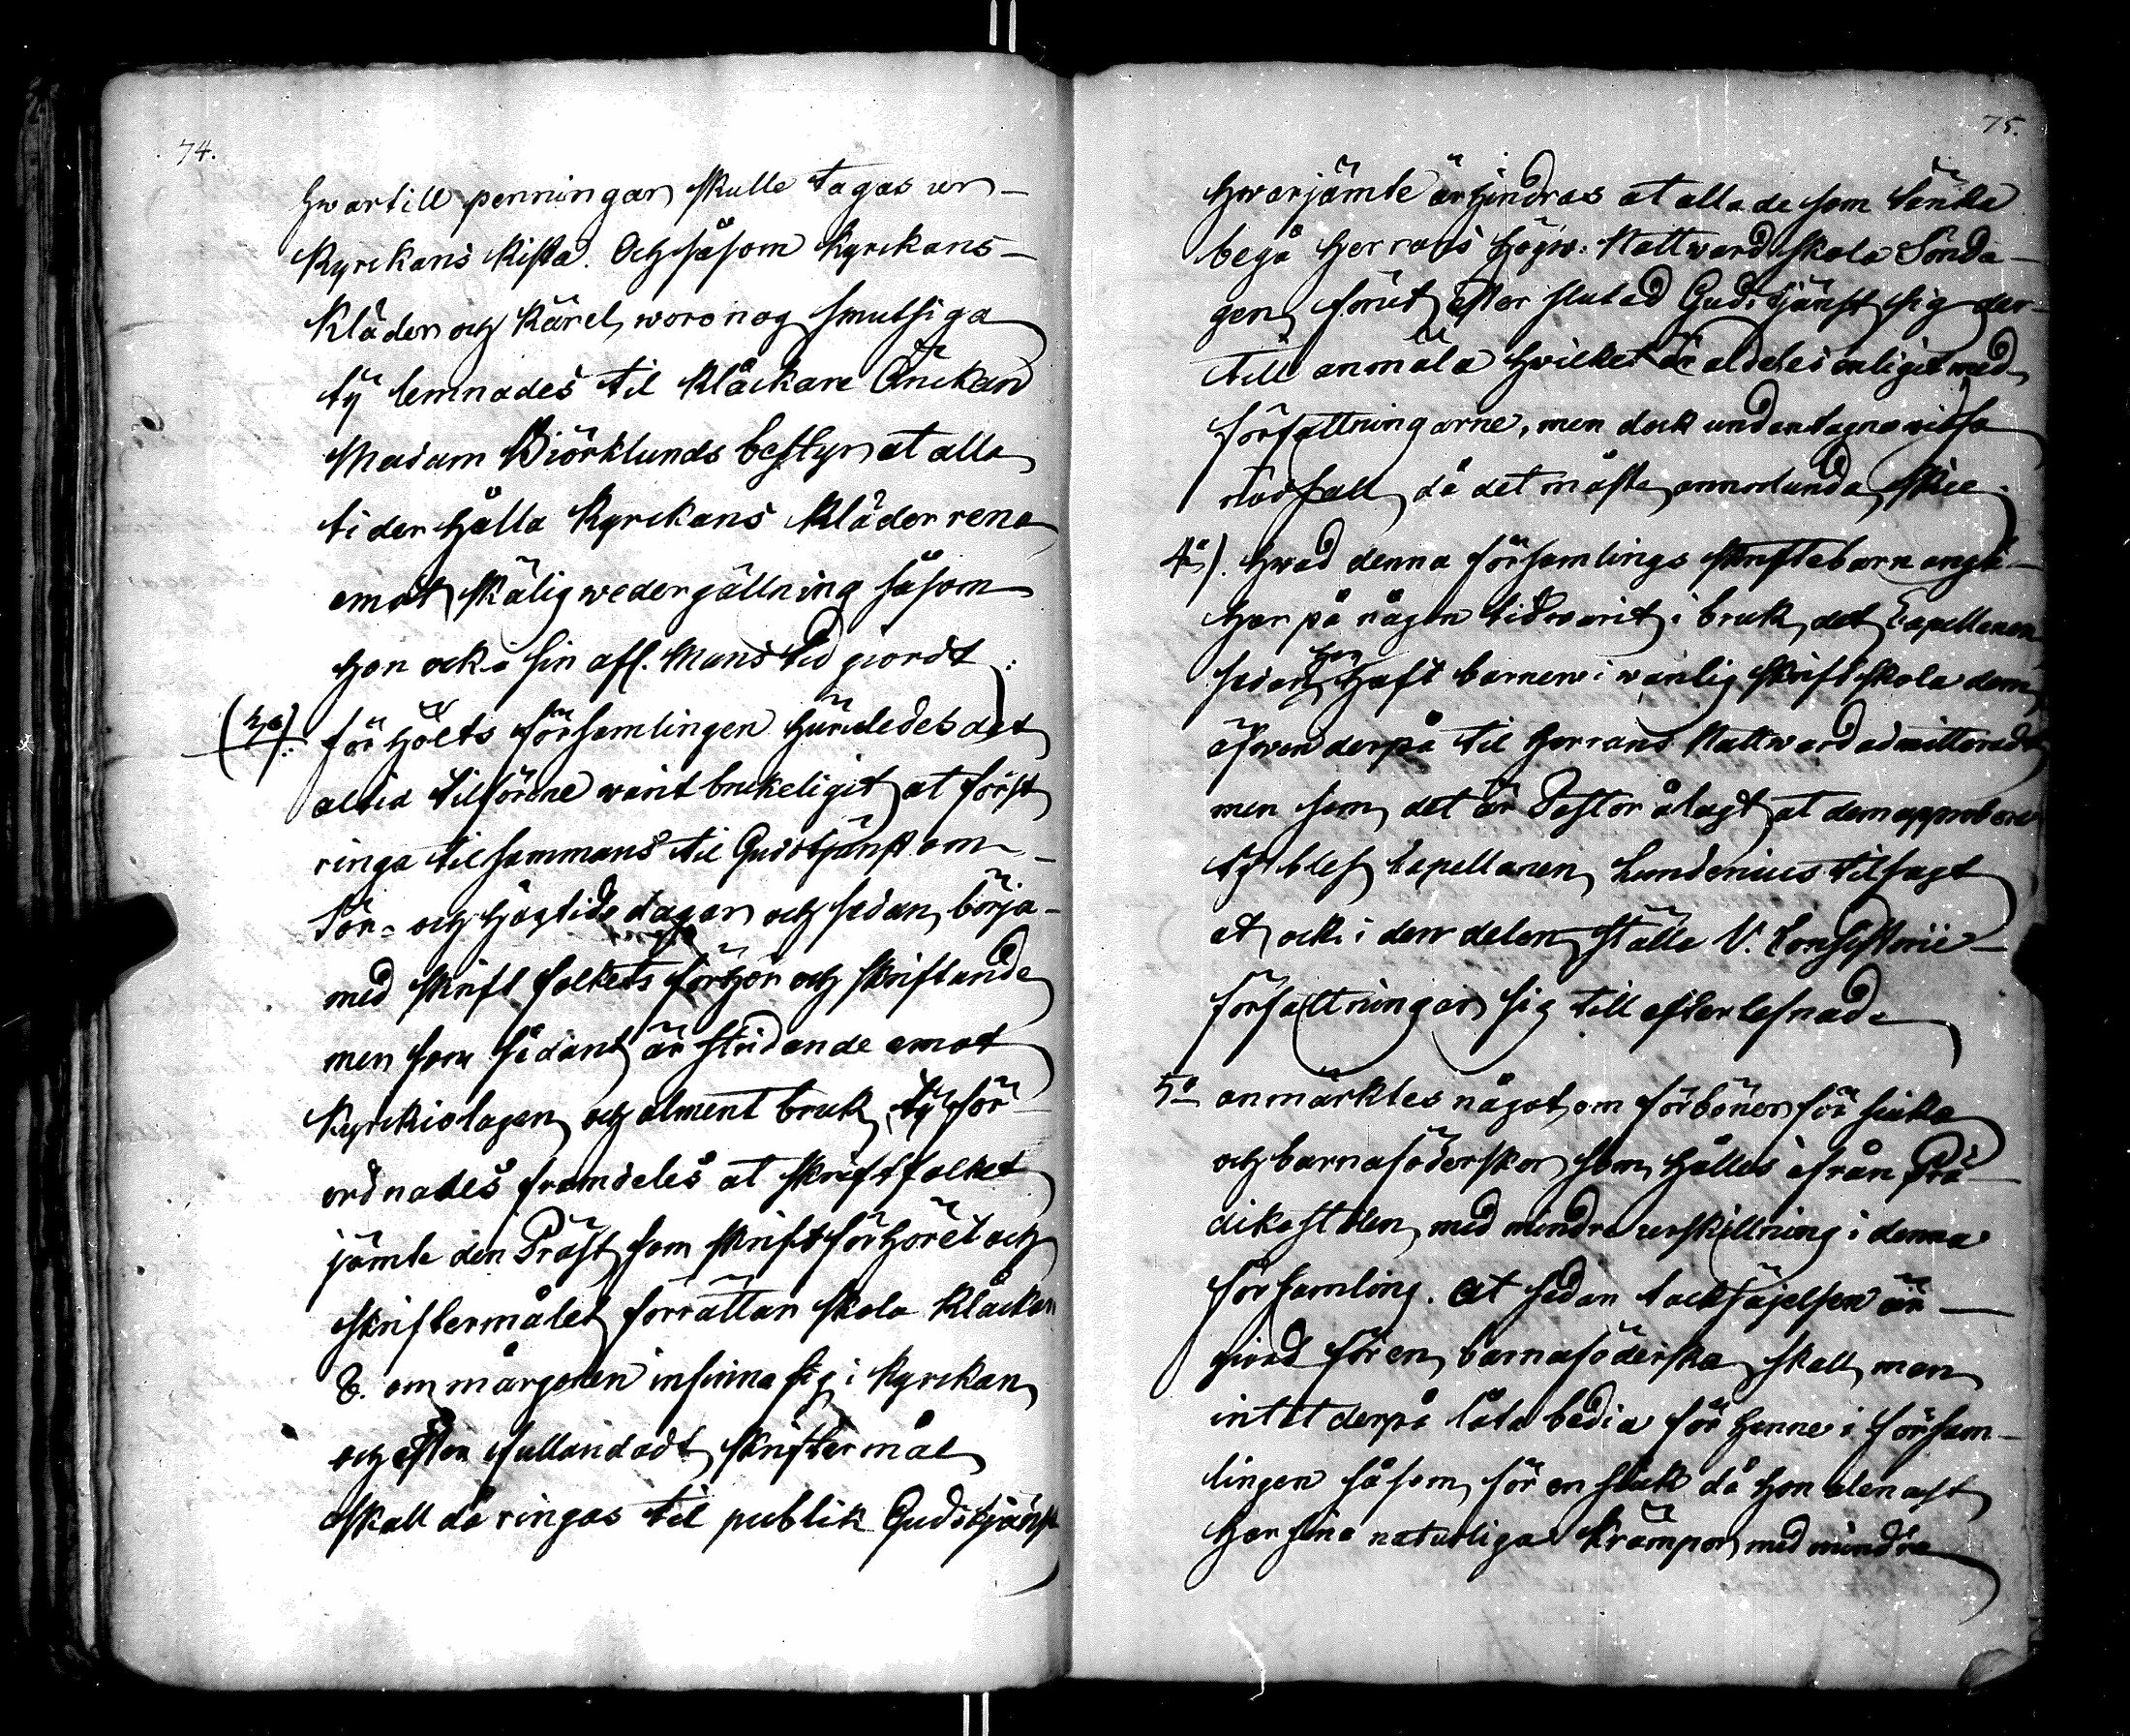 74.
hwartill penningar skulle tagas ur
Kyrckans kista. Och såsom kyrckans
kläder och kärel woro nog smutsiga
ty lemnades til klåckare Änckan
Madam Biörklunds bestyr at alla
tider hålla kyrckans kläder rena
emot skälig wedergällning såsom
hon ock i sin afl. Mans tid giordt:
3o). förhölts församlingen huruledes det
altid tilförene warit brukeligit at först
ringa tilsammans til Gudstjänst om
Sön- och högtids dagar och sedan börja
med skriftfolkets förhör och skriftande
men som sådant är stridande emot
kyrkiolagen och alment bruk, ty för-
ordnades framdeles at skriftfolket
jämte den Präst som skriftförhöret och
skriftermålet förrättar skola klåckan
8. om mårgonen infinna sig i kyrckan
och efter fulländadt skriftermål
skall då ringas til publik Gudstjänst
75.
hwarjämte ärhindras at alla de som tänka
begå Herrans högw: Nattward skola Sönda-
gen förut efter slutad Gudstjänst sig der-
till anmäla hwilket är aldeles enligit med
författningarne, men dock undantagne wissa
nödfall då det måste annorlunda skie.
4o). hwad denna församlings skriftebarn angår
har på någon tid warit i bruk, det Capellanen
sedan han haft barnen i wanlig skriftskola dem
äfwen derpå til Herrans Nattward admitteradt
men som det är Pastor ålagt at dem approbera
ty blef Capellanen Lundenius tilsagt
at ock i den delen ställa V. Consistorii
författningar sig till efterlefnad.
5o anmärktes något om förböner för siuka
och barnasöderskor som hålles ifrån Prä-
dikostolen med mindre urskillning i denna
församling. At sedan tacksäjelsen är
giord för en barnasöderska skall man
intet derpå låta bedia för henne i försam-
lingen såsom för en siuk då hon alenast
har sina naturliga krämpor med mindre